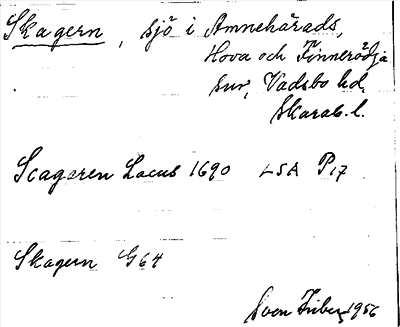 Skagern, sjö i Amnehärads,
Hova och Finnerödja
snr, Vadsbo hd,
Skarab. l.
Scageren Lacus 1690 LSA P17
Skagern G64
Sven Friberg 1956